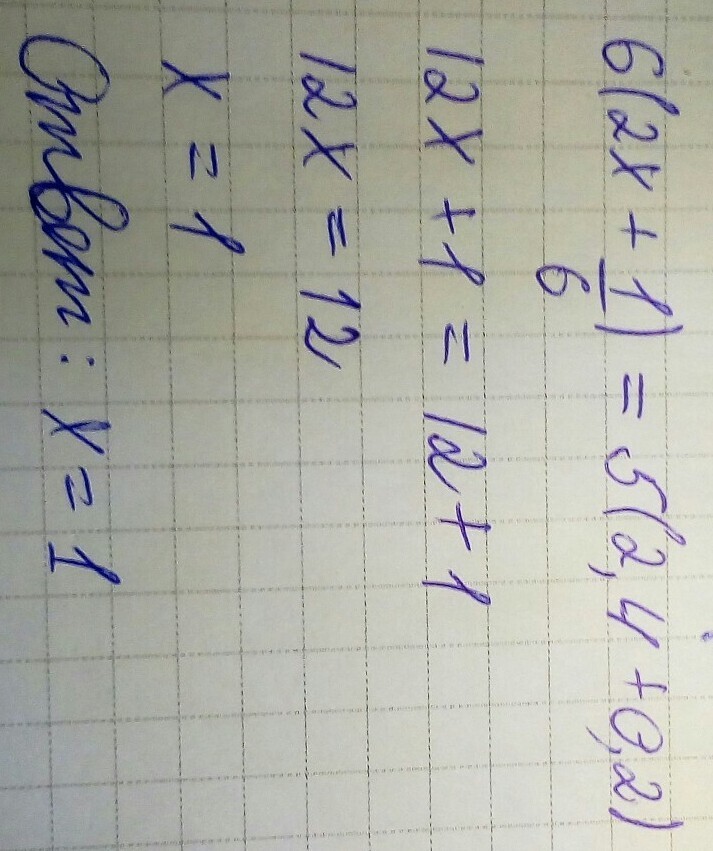 6(2x + 1/6) = 5(2,4 + 0,2)
12x + 1 = 12 + 1
12x = 12
x = 1
Ответ: x = 1